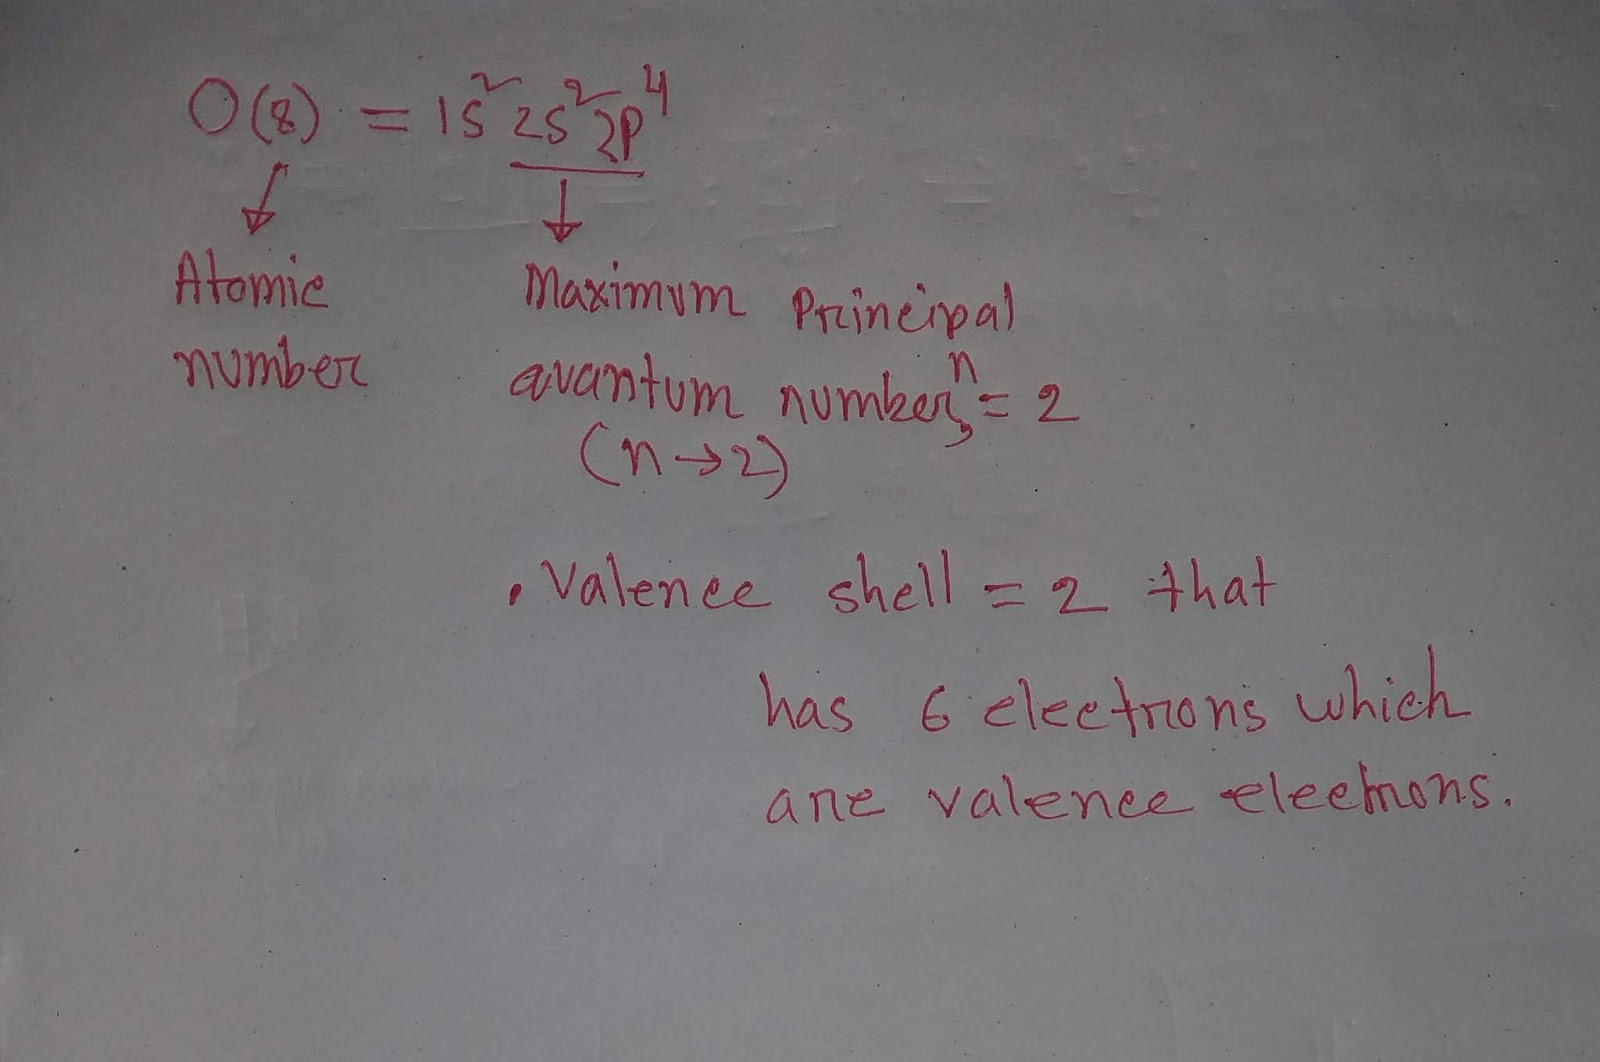 O(8) = 1s² 2s² 2p⁴
Atomic number
Maximum Principal
quantum number, n = 2
(n → 2)
. Valence shell = 2 that
has 6 electrons which
are valence electrons.